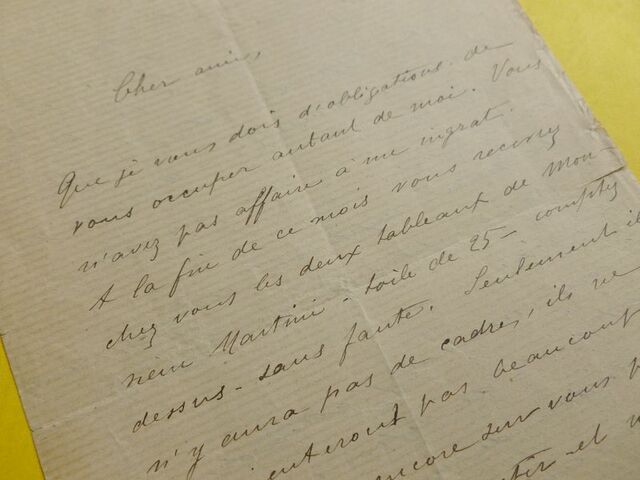 Cher ami,
Que je vous dois d'obligations de
vous occuper autant de moi. Vous
n'avez pas affaire à un ingrat.
A la fin de ce mois vous recevrez
chez vous les deux tableaux de Mon-
sieur Martini - toile de 25 - comptez
dessus - sans faute. Seulement il
n'y aura pas de cadres, ils ne
enteront pas beaucoup
encore sur vous p